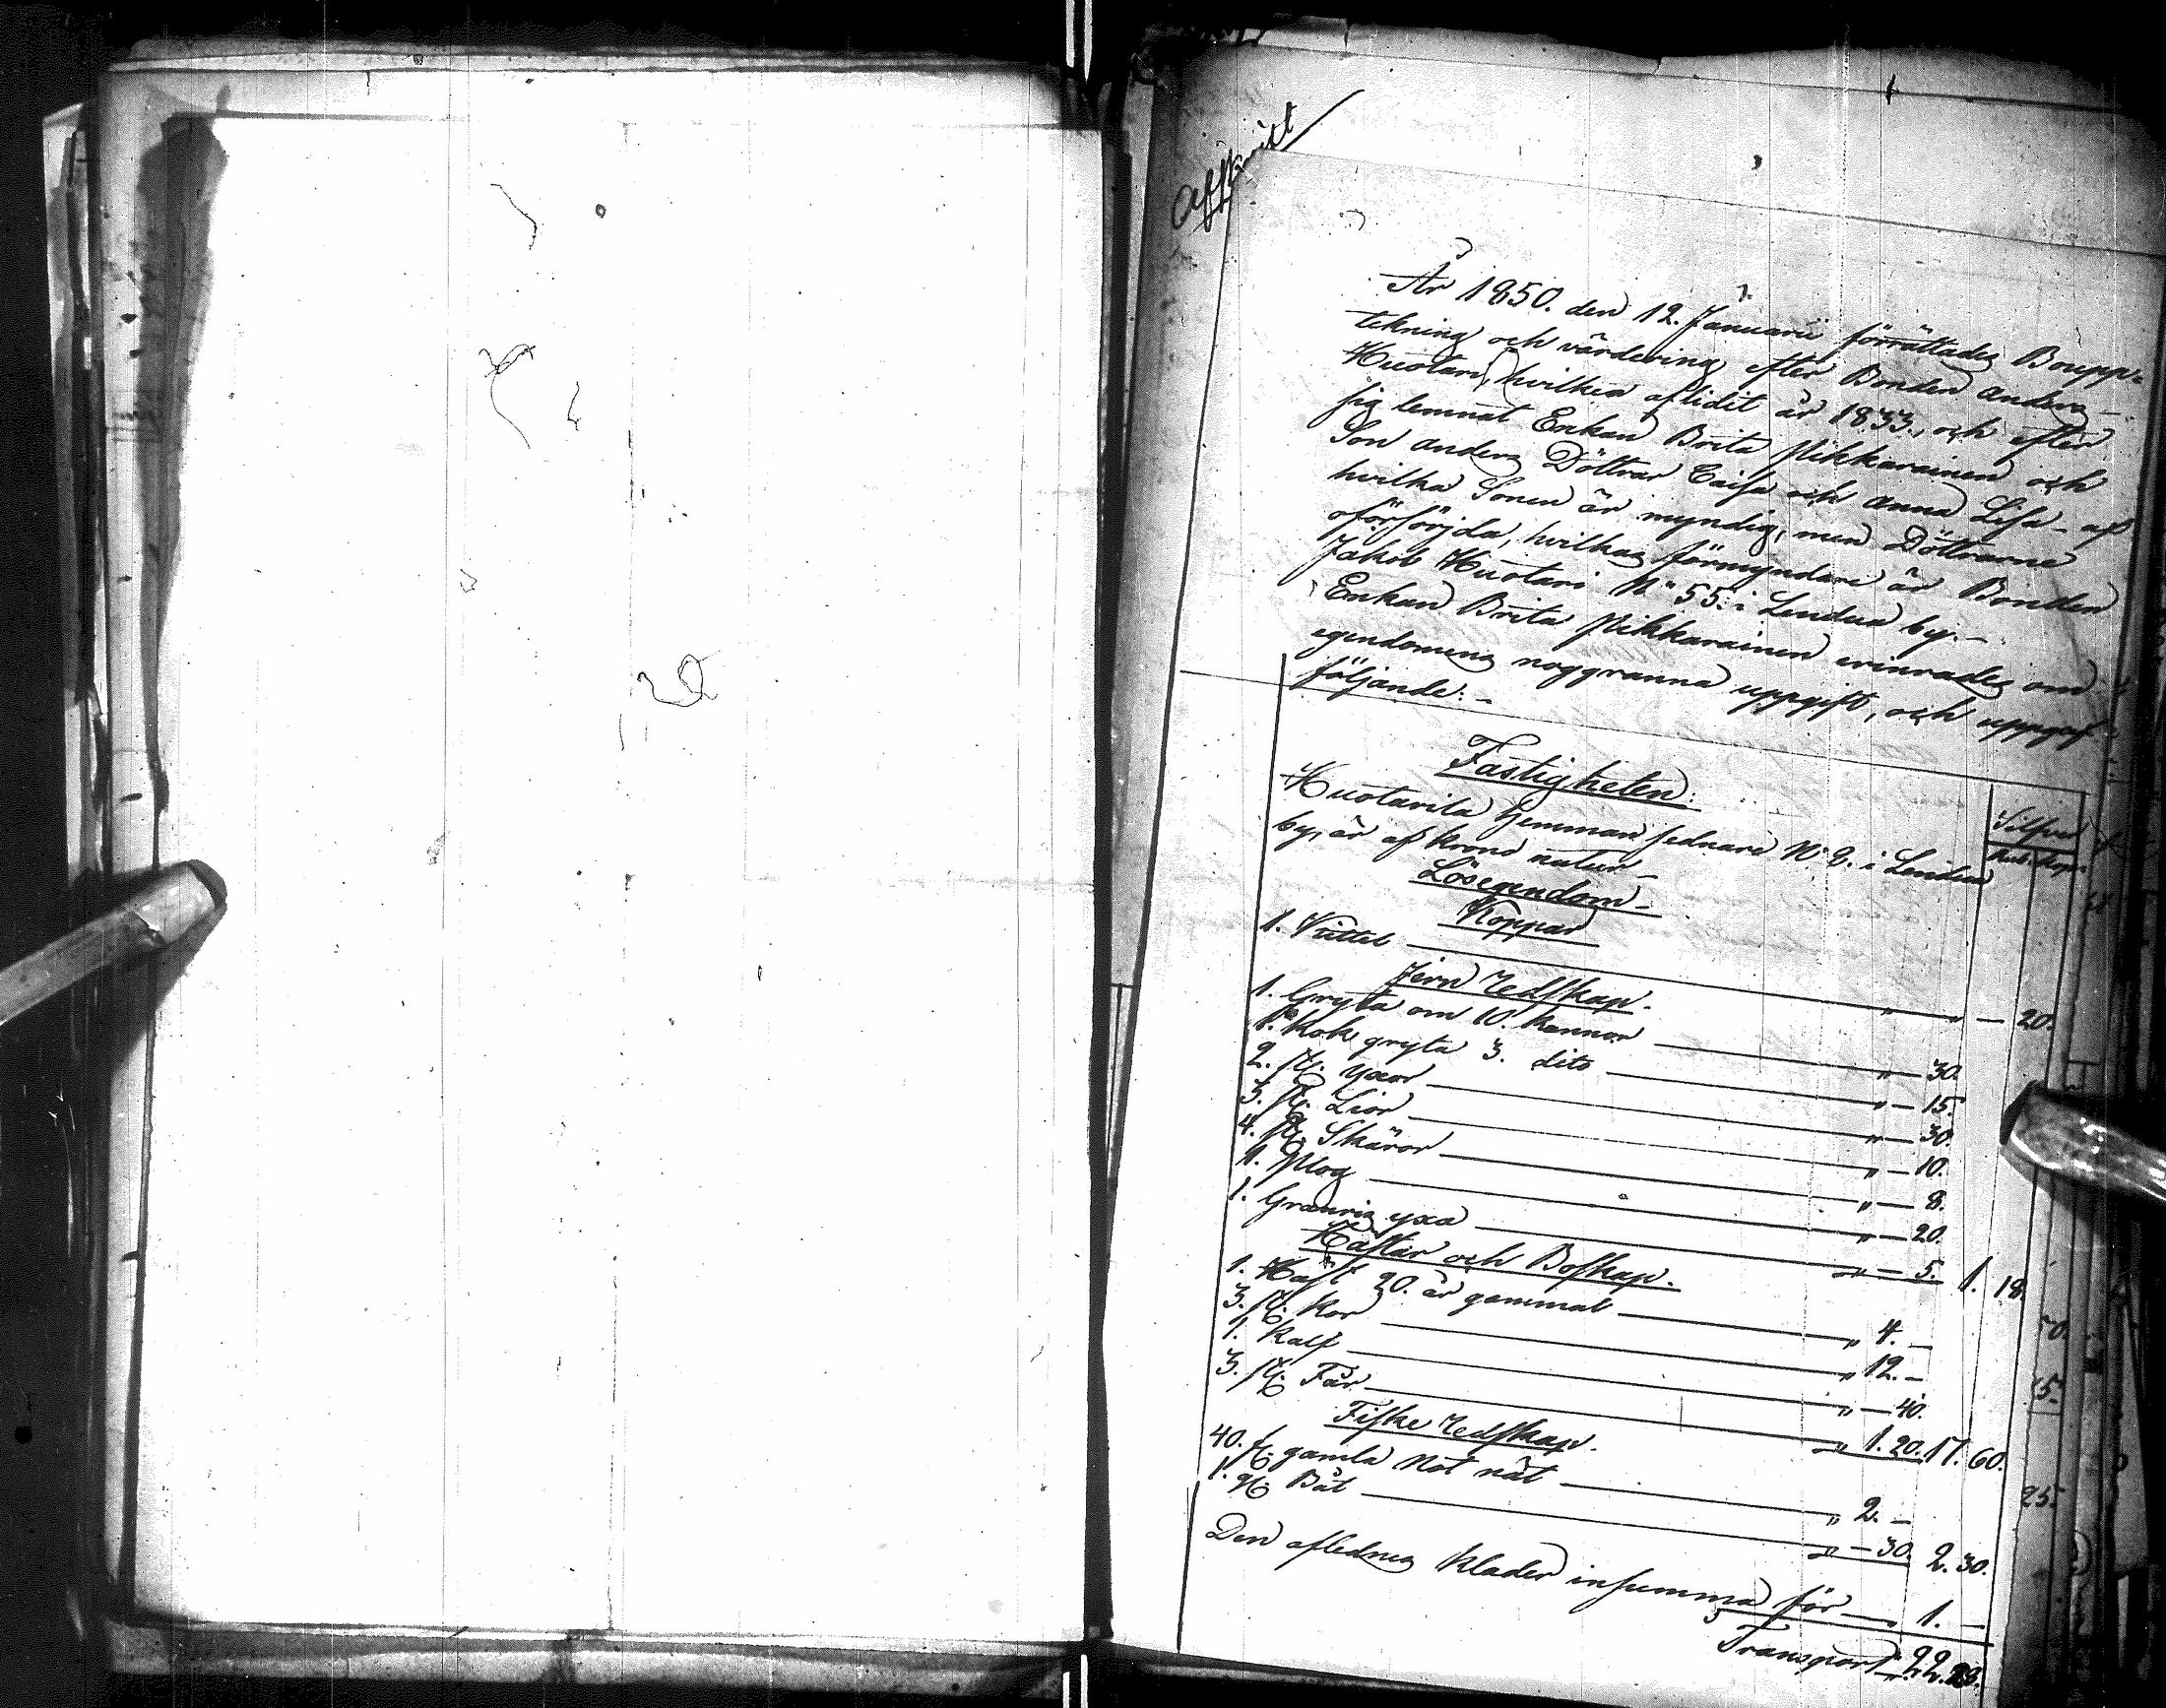 Afskrift
År 1850. den 12. Januarii förrättades Boupp-
tekning och värdering efter Bonden Anders
Huotari, hvilken aflidit år 1833., och efter
sig lemnat Enkan Brita Mikkarainen och
Son Anders Döttrar Caisa och Anna Lisa - af
hvilka Sonen är myndig, men Döttrarne
oförsörjda, hvilkas förmyndare är Bonden
Jakob Huotari N° 55. i Lendua by. -
Enkan Brita Mikkarainen erinrades om
egendomens noggranna uppgift, och uppgaf
följande: -
Silfver
Rub. Kop.
Fastigheten:
Huotarila hemman sednare N° 2. i Lendua
by, är af krono natur -
Lösegendom -
Koppar
1. Kittel — " " — 20.
Jern Redskap.
1. Gryta om 10. kannor — " — 30.
1. Kok gryta 3. dito — " — 15.
2. st. yxor — " — 30.
3. st. Lior — " — 10.
4. st. Skäror — " — 8.
1. Plog — " — 20.
1. Granris yxa — " — 5. 1. 18.
Hästar och Boskap.
1. Häst 20. år gammal — " 4. —
3. st. Kor — " 12. —
1. Kalf — " — 40.
3. st. Får — " 1. 20. 17. 60.
Fiske Redskap.
40. f. gamla Not nät — " 2. —
1. st. Båt — " — 30. 2. 30.
Den aflednes Kläder insumma för — 1. —
Transport 22. 28.